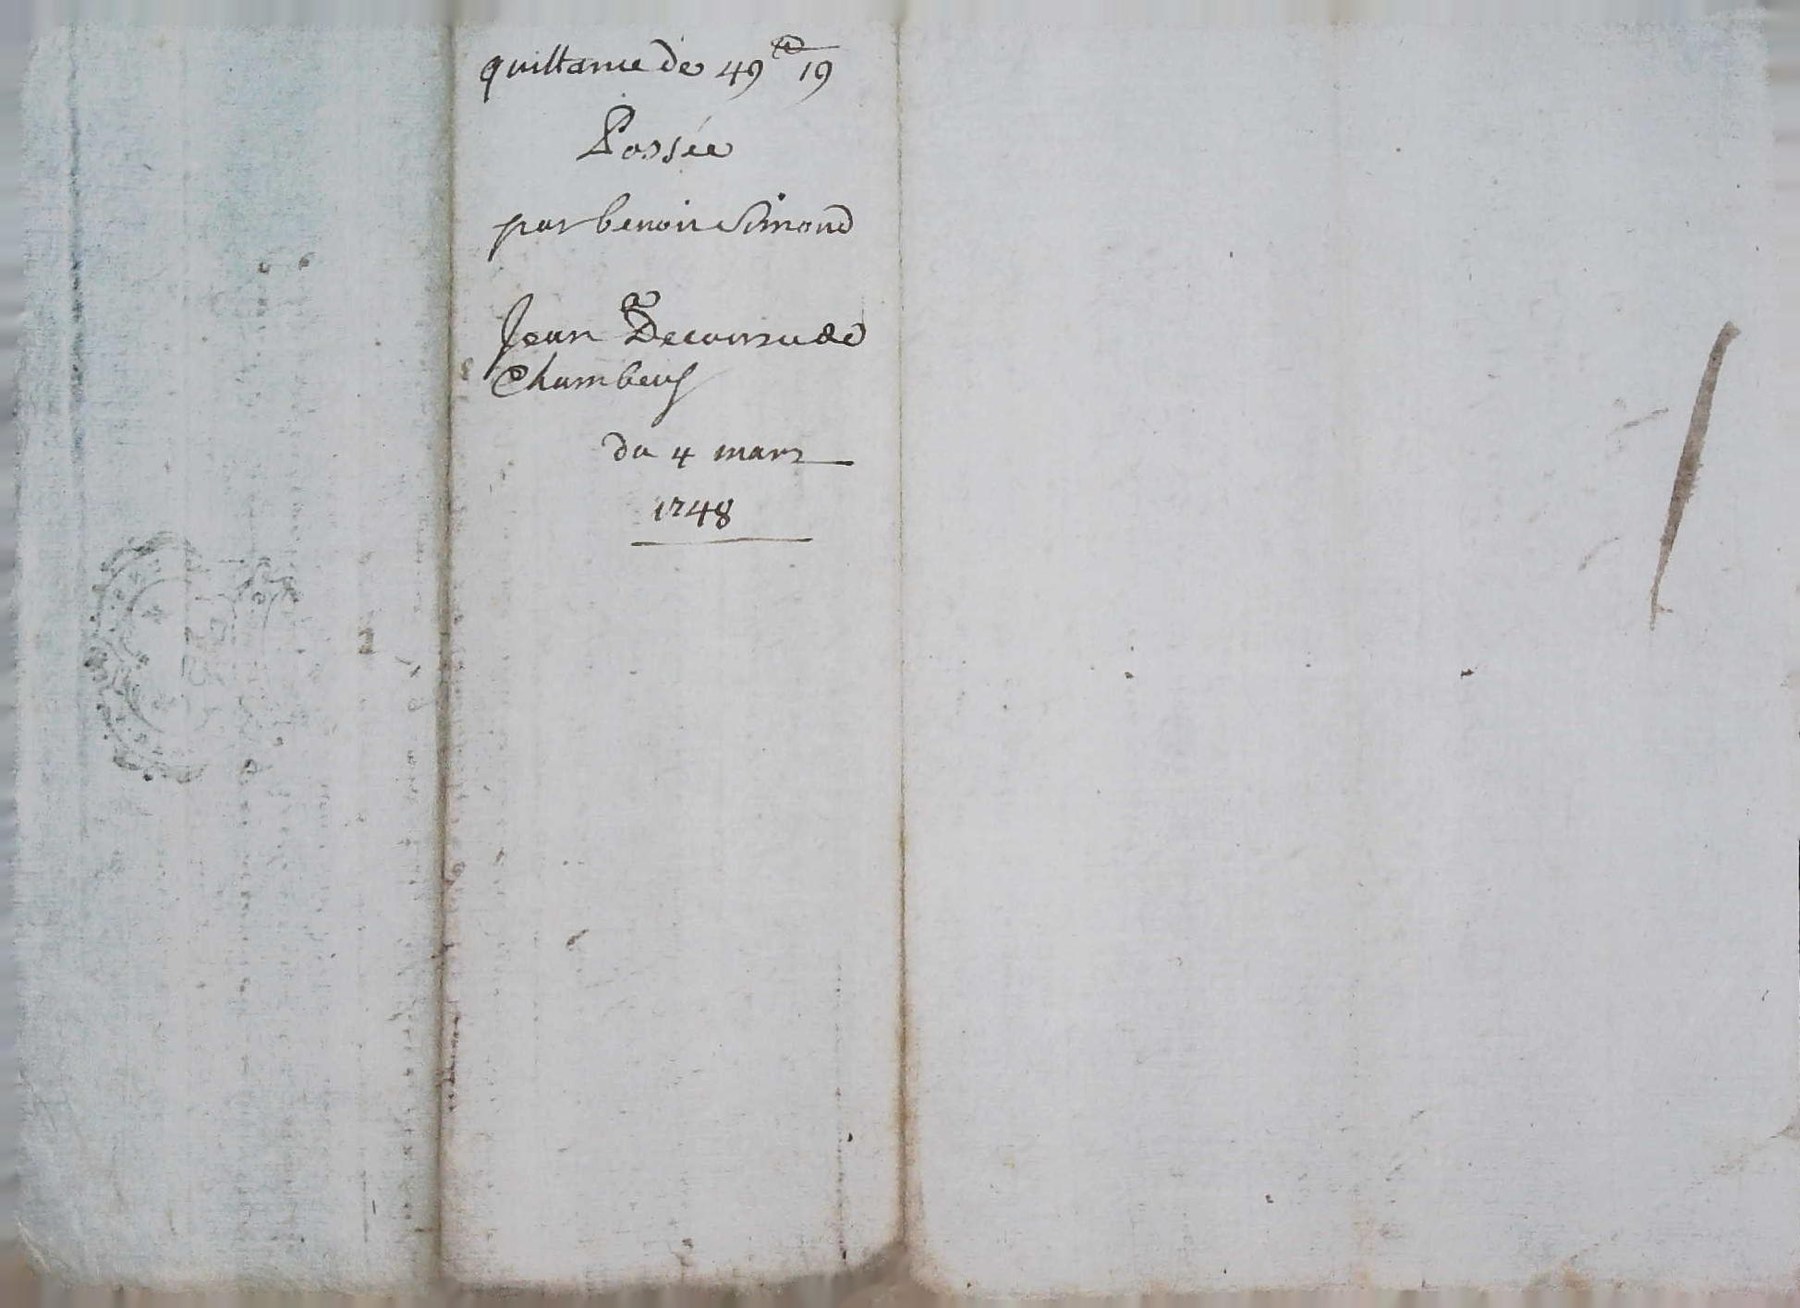 quittance de 49ᵗᵗ 19
Passée
par benoit Simond
Jean
Chambeuf
du 4 mars
1748